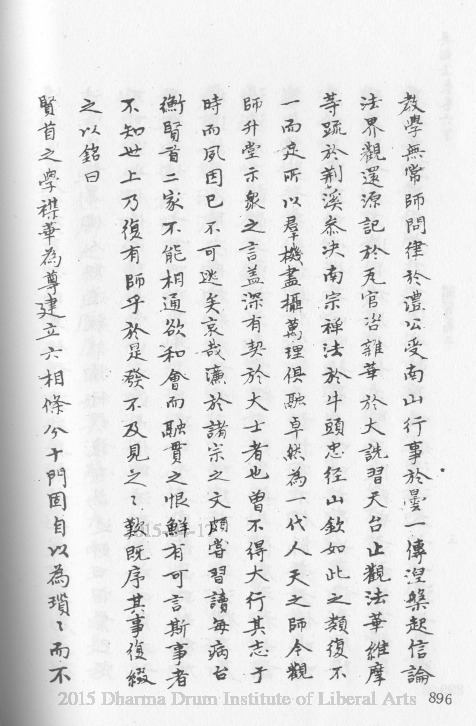 教學無常師問律於澧公受南山行事於曇一傳涅槃起信論
法界觀還源記於瓦官咨雜華於大詵習天台止觀法華維摩
等疏於荊溪叅決南宗禪法於牛頭忠徑山欽如此之類復不
一而足所以羣機盡攝萬理俱融卓然為一代人天之師今觀
師升堂示衆之言盖深有契於大士者也曾不得大行其志于
時而夙因已不可逃矣哀哉濂於諸宗之文頗嘗習讀每病台
衡賢首二家不能相通欲和會而融貫之恨鮮有可言斯事者
不知世上乃復有師乎於是發不及見之〻歎既序其事復綴
之以銘曰
賢首之學襍華為尊建立六相條分十門固自以為瑣〻而不
896
2015 Dharma Drum Institute of Liberal Arts